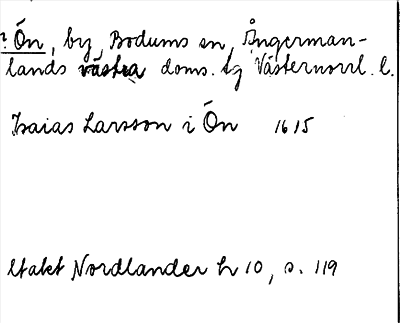 ? Ön, by, Bodums sn, Ångerman-
lands västra doms. tg Västernorrl. l.
Isaias Larsson i Ön 1615
Utakt Nordlander h 10, s. 119